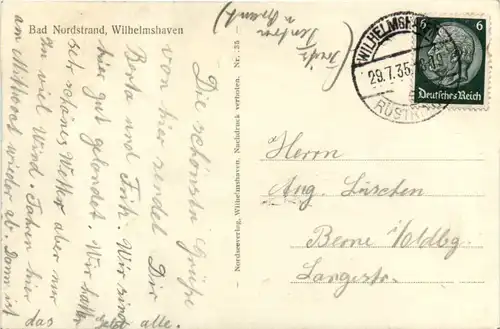 Bad Nordstrand, Wilhelmshaven
Die schönsten Grüße
von hier sendet Dir
Berta und Fritz. Wir sind
hier gut gelandet. Wir hatten
sehr schönes Wetter aber nur
zu viel Wind. Fahren hier
am Mittwoch wieder ab. Dann ist
das Geld alle.
(Fritz
Nordseeverlag, Wilhelmshaven. Nachdruck verboten. Nr. 35
WILHELMSHAVEN
29.7.35
RÜSTRINGEN
6 6
Deutsches Reich
Herrn
Aug. Lüschen
Berne i/Oldbg.
Langestr.